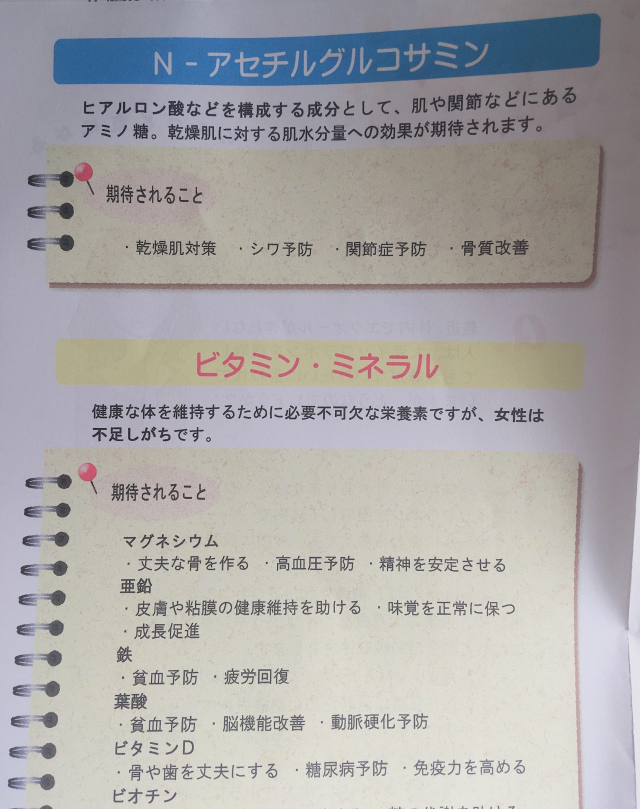 N - アセチルグルコサミン
ヒアルロン酸などを構成する成分として、肌や関節などにある
アミノ糖。乾燥肌に対する肌水分量への効果が期待されます。
期待されること
・乾燥肌対策 ・シワ予防 ・関節症予防 ・骨質改善
ビタミン・ミネラル
健康な体を維持するために必要不可欠な栄養素ですが、女性は
不足しがちです。
期待されること
マグネシウム
・丈夫な骨を作る ・高血圧予防 ・精神を安定させる
亜鉛
・皮膚や粘膜の健康維持を助ける ・味覚を正常に保つ
・成長促進
鉄
・貧血予防 ・疲労回復
葉酸
・貧血予防 ・脳機能改善 ・動脈硬化予防
ビタミンD
・骨や歯を丈夫にする ・糖尿病予防 ・免疫力を高める
ビオチン